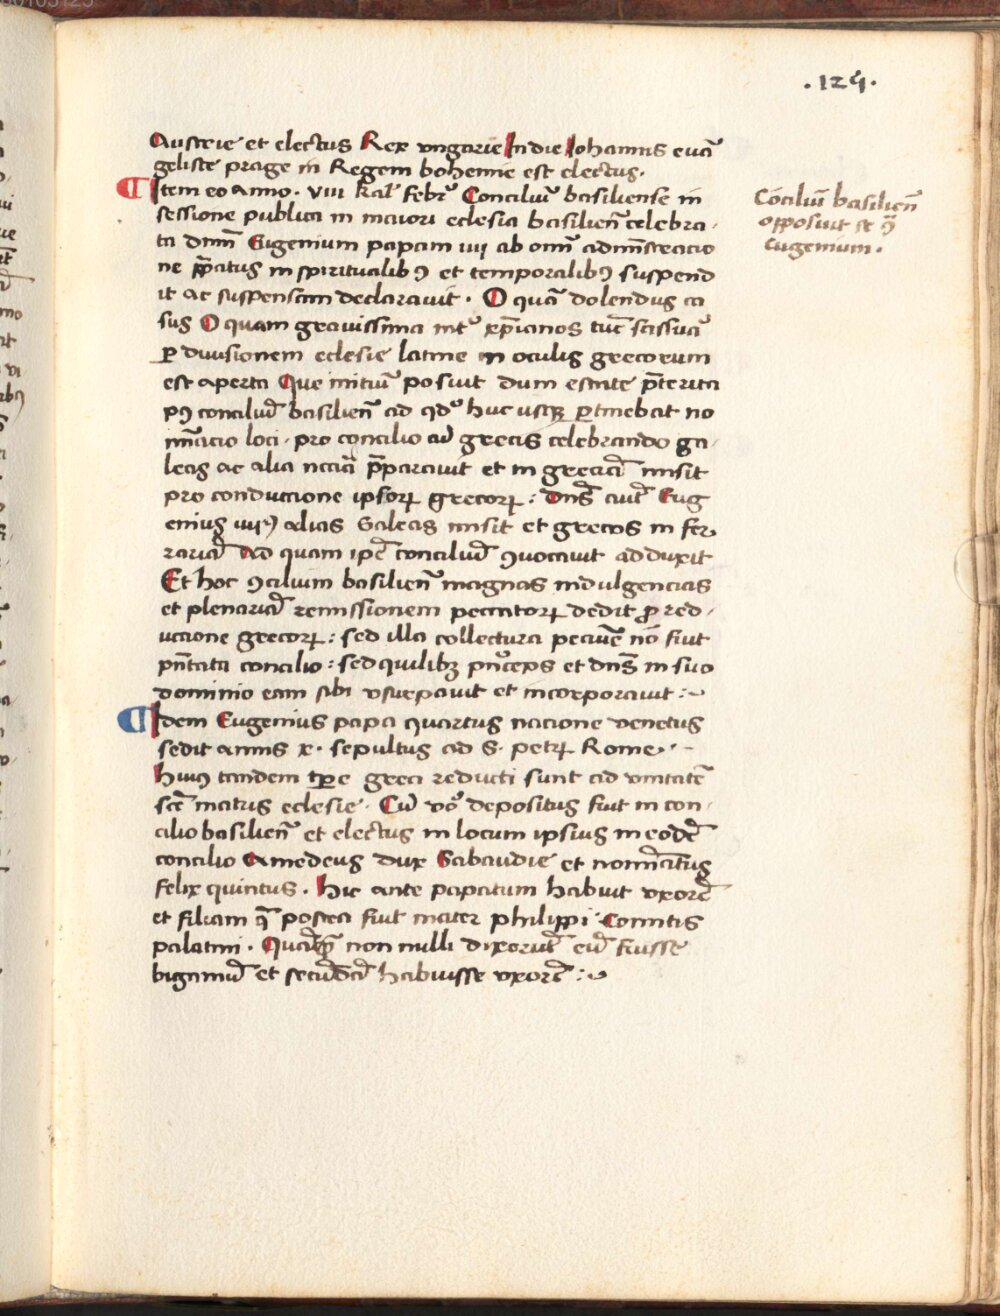 .124.
Austrie et electus Rex vngarie In die Iohannis euā
geliste prage in Regem bohemie est electus.
Item eo anno. viii kal̄ febr̄ Conciliū basiliense in
sessione publica in maiori eclesia basilien̄ celebra-
ta dnm̄ Eugenium papam iiii ab omī admīstracio
ne pp̄atus in spiritualibꝰ et temporalibꝰ suspend
it ac suspensum declarauit. O quā dolendus ca
sus O quam grauissima int̄ xp̄ianos tūc scissura
ꝑ diuisionem eclesie latine in oculis grecorum
est aperta Que initiū posuit dum estate p̄terita
pꝰ conciliū basilien̄ ad qd̄ huc usqꝫ ꝑtinebat no
mīacio loci. pro concilio cū grecis celebrando ga-
leas ac alia nccīa p̄parauit et in greciā misit
pro conductione ipsoꝝ grecoꝝ: Dns̄ aut̄ Eug
enius iiiiꝰ alias Galeas misit et grecos in fer
rariā Ad quam ip̄e conciliū ꝯuocauit adduxit
Et hoc ꝯcilium basilien̄ magnas indulgencias
et plenariā remissionem peccatoꝝ dedit ꝓ red-
uctione grecoꝝ: sed illa collectura pecunie nō fuit
pn̄tata concilio: sed quilibꝫ pn̄ceps et dns̄ in suo
dominio eam sibi vsurpauit et incorporauit:~
Idem Eugenius papa quartus nacione venetus
sedit annis x. sepultus ad S. petꝝ Rome.-
huiꝰ tandem tꝑe greci reducti sunt ad vnitatē
scē matris eclesie. Cū vō depositus fuit in con-
cilio basilien̄ et electus in locum ipsius in eodē
concilio Amedeus dux Sabaudie et nomīatus
felix quintus. hic ante papatum habuit vxorē
et filiam q̄ postea fuit mater philippi Comitis
palatini. Quāqꝫ non nulli dixerūt eū fuisse
bigamū et secūdā habuisse vxorē:~
Cōciliū basilien̄
opposuit se ꝯ̄
Eugenium.